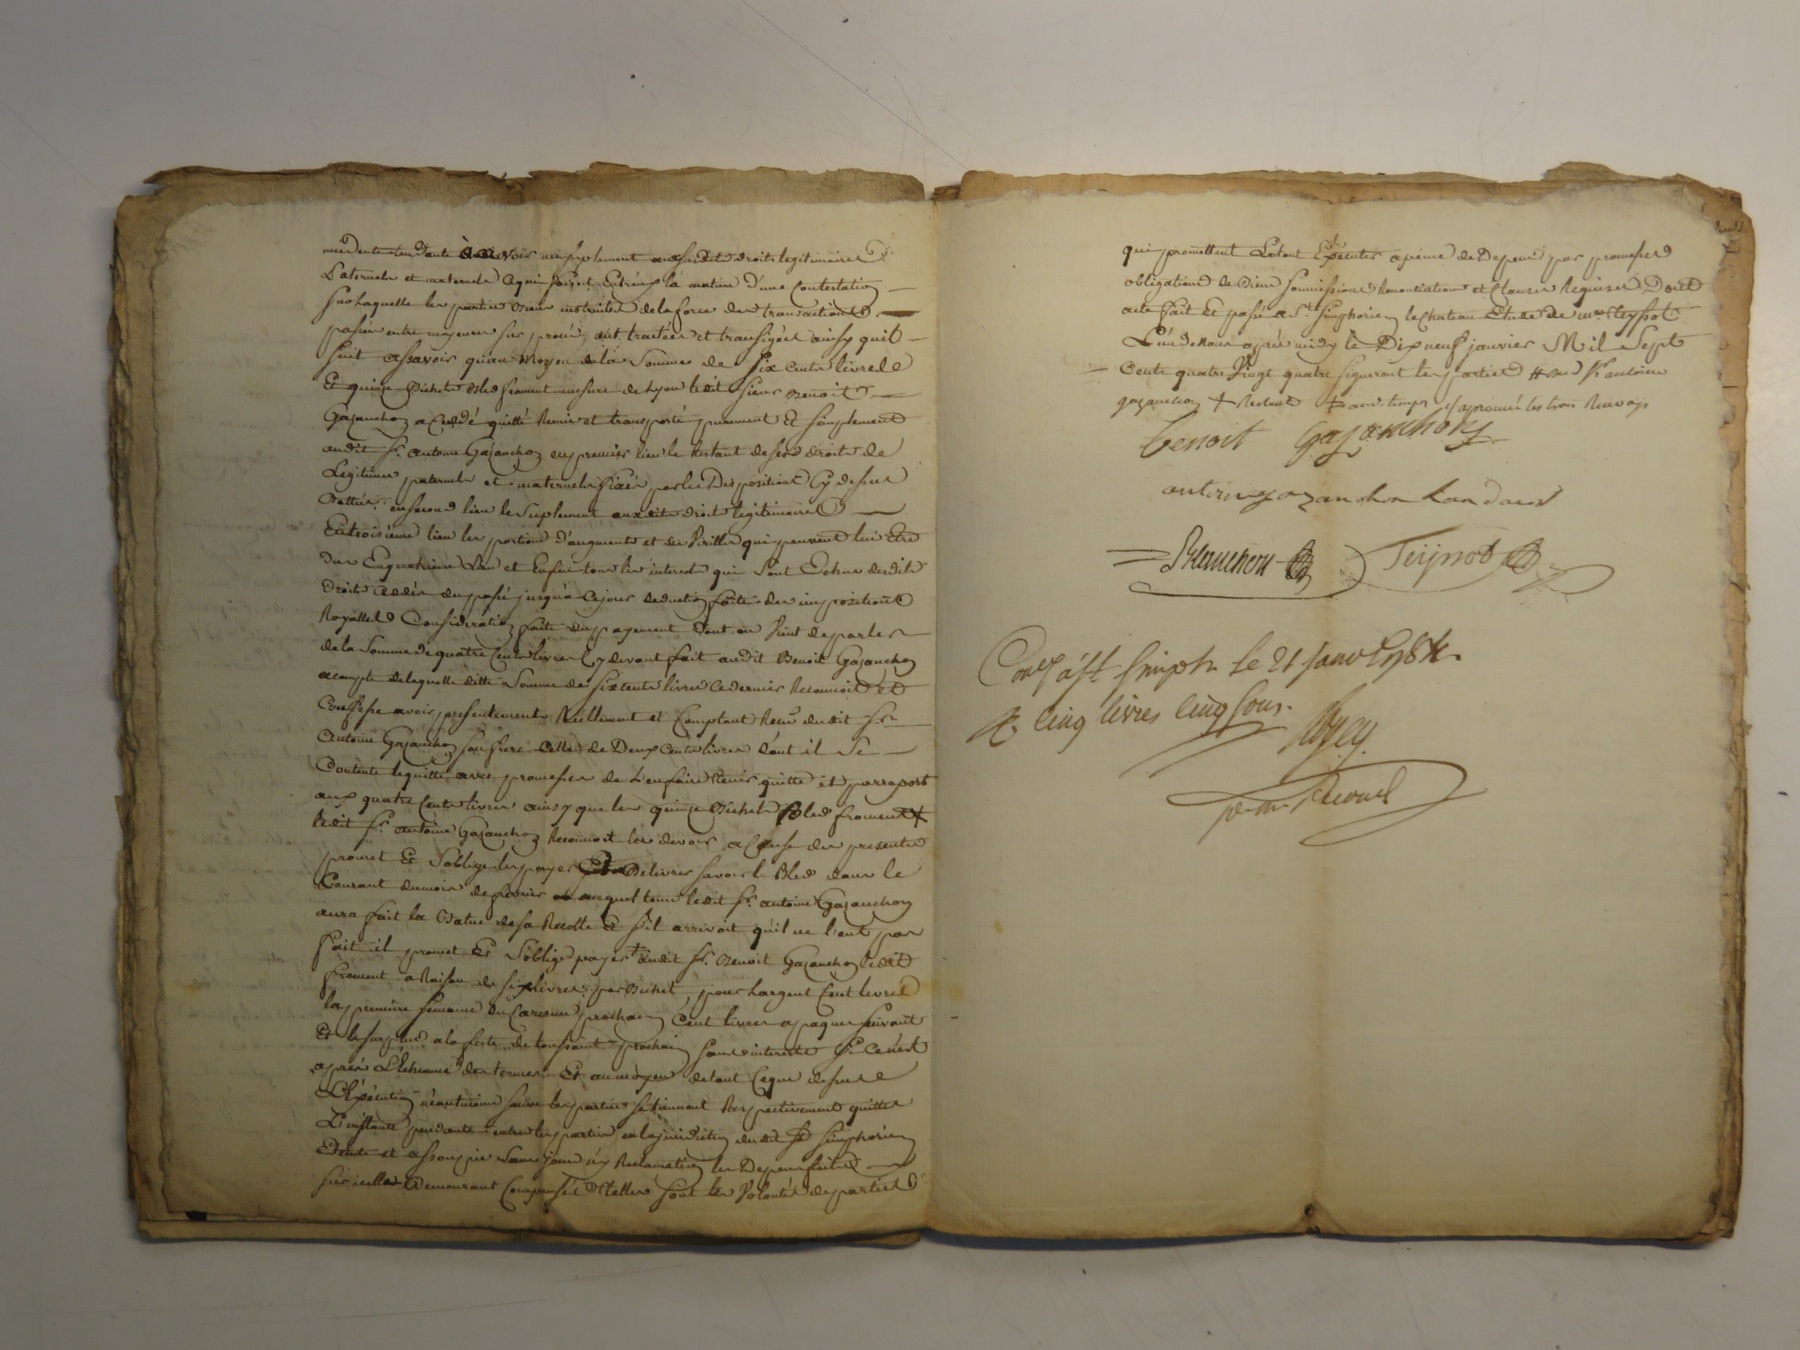 tendante à avoir un suplement auxsusdits droits legitimaires
Paternels et maternels ce qui faisoit Entreux la matiere d'une Contestation
Sur laquelle les parties Bien instruites de la force des transactions
passées entre majeurs sur procès, ont traitées et transigées ainsy quil
suit assavoir quau Moyen de la Somme de Six Cents livres
Et quinze Bichets Bled froment mesure de Lyon ledit Sieur Benoit
Gazanchon a Ceddé quitté Remis et transporté purement Et simplement
audit Sr. antoine Gazanchon en premier lieu le Restant de ses droits de
Legitimes paternels et maternels fixés par les Dispositions Cy dessus
Dattées, en second lieu le Suplement auxdits droits legitimaires
En troisieme lieu les portions d'augments et de Virilles qui peuvent lui Etre
dues En quatrieme lieu et Enfin tous les interets qui sont Echus desdits
Droits Cedés du passé jusqu'a Ce jour deduction faite des impositions
Royalles Consideration faite du payement dont on Vient de parler
de la Somme de quatre Cents livres Cy devant fait audit Benoit Gazanchon
acompte de laquelle ditte Somme de six cents livres Ce dernier Reconnoit Et
Confesse avoir presentement Reellement et Comptant Reçu dudit Sr
Antoine Gazanchon Son frere Celle de Deux Cents livres dont il Se
Contente le quitte avec promesses de L'en faire tenir quitte et par raport
aux quatre Cents livres ainsy que les quinze Bichets Bled froment +
ledit Sr. antoine Gazanchon Reconnoit les devoir a Cause des presentes
promet Et Soblige les payer Et Delivrer savoir le Bled dans le
Courant du mois de fevrier auquel tems ledit Sr. antoine Gazanchon
aura fait la Batue de sa Recolte Et S'il arrivoit qu'il ne l'eut pas
fait il promet Et Soblige payer + audit Sr. Benoit Gazanchon ledit
froment a Raison de six livres par Bichet, pour Largent Cent livres
la premiere Semaine du Careme prochain Cent livres a paques suivant
Et le surplus a la feste de toussaint prochain sans interests Si Ce n'est
après L'Echeance des termes Et au moyen de tout Ceque dessus
L'Execution neantmoins sauve les parties se tiennent Respectivement quittes
L'instance pendante entre les parties en la juridiction dudit St Simphorien
Eteinte et assoupie Sans jamais y Reclamation les Depens faits
Sur icelle Demeurant Compensés Telles sont les Volontés des parties
qui promettent Letout Executer a peine de Depens par promesses
obligations de Biens Soumissions Renonciations et Clauses Requises Dont
acte Fait Et passé a St. Simphorien le Chateau Etude de me. Teyssot
L'un de Nous après midy le Dix neuf janvier Mil Sept
Cents quatre Vingt quatre signeront les parties # Sr antoine
gazanchon + Restant + aud. temps / aprouvé les trois Renvois
benoit Gazanchon
antoine gazanchon
Blanchon Teyssot
Conlé a St. Simph. le 21 janv 1784.
R. cinq livres cinq sous.